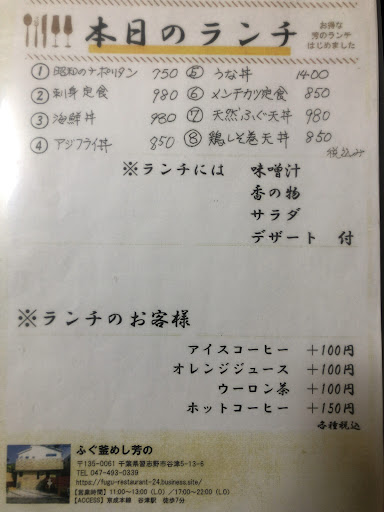 本日のランチ
お得な
芳のランチ
はじめました
① 昭和のナポリタン 750
② 刺身定食 980
③ 海鮮丼 980
④ アジフライ丼 850
⑤ うな丼 1400
⑥ メンチカツ定食 850
⑦ 天然ふぐ天丼 980
⑧ 鶏しそ巻天丼 850
税込み
※ランチには 味噌汁
香の物
サラダ
デザート 付
※ランチのお客様
アイスコーヒー +100円
オレンジジュース +100円
ウーロン茶 +100円
ホットコーヒー +150円
各種税込
ふぐ釜めし芳の
〒135-0061 千葉県習志野市谷津5-13-6
TEL 047-493-0339
https://fugu-restaurant-24.business.site/
【営業時間】11:00~13:00(L.O) /17:00~22:00(L.O)
【ACCESS】京成本線 谷津駅 徒歩7分